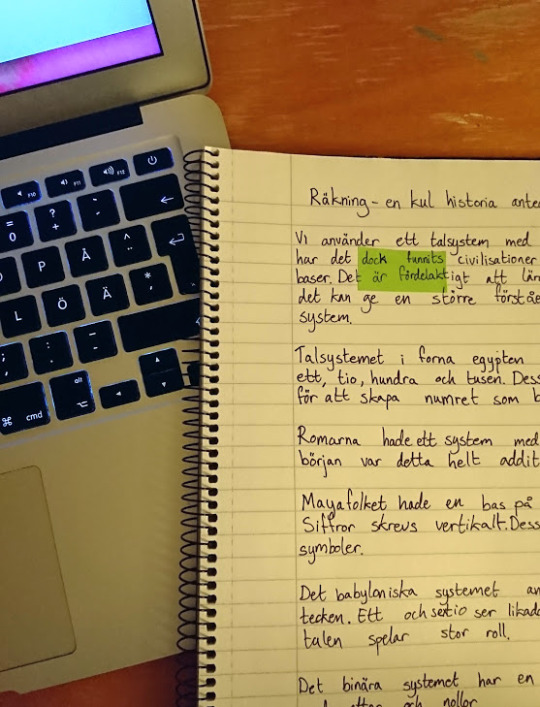 Räkning - en kul historia
Vi använder ett talsystem med
har det dock funnits civilisationer
baser. Det är fördelaktigt att
det kan ge en större
system.
Talsystemet i forna egypten
ett, tio, hundra och tusen.
för att skapa numret som
Romarna hade ett system med
början var detta helt
Mayafolket hade en bas på
Siffror skrevs vertikalt.
symboler.
Det babyloniska systemet
tecken. Ett och sextio ser
talen spelar stor roll.
Det binära systemet har en
ettor och nollor
F10 F11 F12
= 0 ? + ` ´
P Å ^ ¨
L Ö Ä * '
; , : . _ -
⌘ cmd alt ⌥